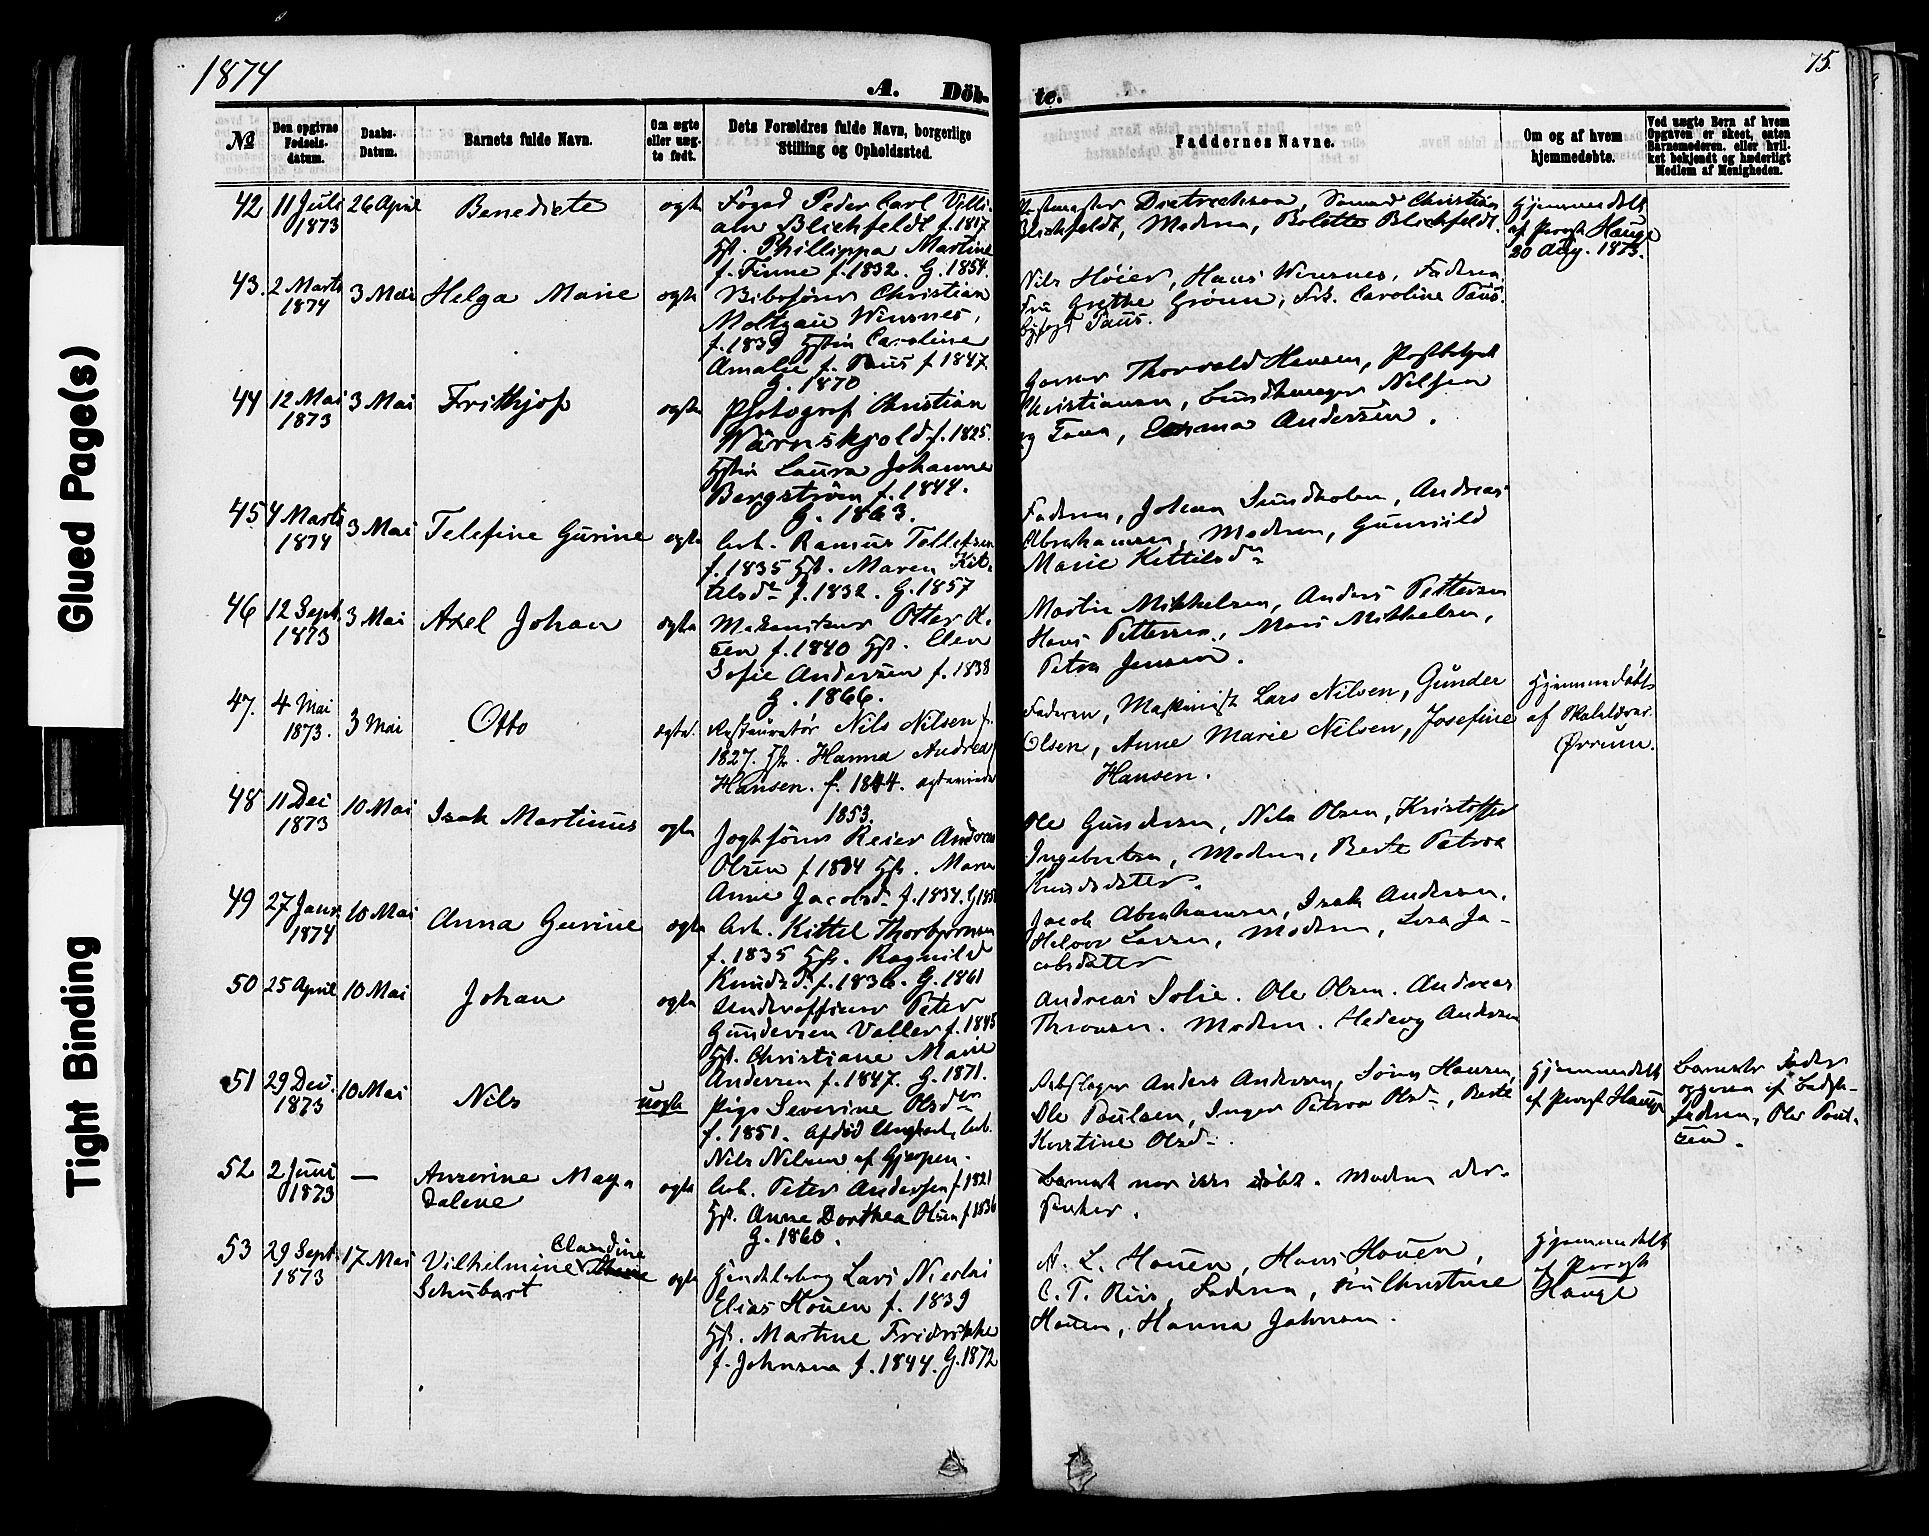 1874
A. Döb-
te.
75.
№
Den opgivne Fødsels-datum.
Daabs-Datum.
Barnets fulde Navn.
Om ægte eller uægte født.
Dets Forældres fulde Navn, borgerlige Stilling og Opholdssted.
Faddernes Navne.
Om og af hvem hjemmedøbte.
Ved uægte Børn af hvem Opgaven er skeet, enten Barnemoderen eller hvilket bekjendt og hæderligt Medlem af Menigheden.
42 11 Juli 1873 26 April Benedicte ægte
Foged Peder Carl Villi-
am Blichfeldt f. 1817
Hst. Phillippa Martine
f. Finne f. 1832. G. 1854.
Christian
Blichfeldt, Moderen, Bolette Blichfeldt.
Hjemmedøbt
af Provst Hauge
20 Aug. 1873.
43. 2 Marts 1874 3 Mai Helga Marie ægte
Christian
Moltzau Winsnes,
f. 1839 Hstru Caroline
Amalie f. Paus f. 1847
G. 1870
Nils Høier, Hans Winsnes, Faderen,
Fru Grethe Frk. Caroline Paus.
Byfogd Paus.
44 12 Mai 1873 3 Mai Frithjof ægte
Photograf Christian
Wärnskjold f. 1825.
Hstru Laura Johanne
Bergström f. 1844.
G. 1863.
Thorvald Hansen,
Christiansen, Nilsen
Andersen.
45 4 Marts 1874 3 Mai Telefine Gurine ægte
Arb. Rasmus Tollefsen
f. 1835 Hst. Maren Kit-
tilsdr. f. 1832. G. 1857
Faderen, Johan Sundholm, Andreas
Abrahamsen, Moderen, Gunnild
Marie Kittilsdr
46 12 Sept. 1873 3 Mai Axel Johan ægte
Otter Ol-
sen f. 1840 Hst. Elen
Sofie Andersen f. 1838
G. 1866.
Martin Mikkelsen, Anders Pettersen
Hans Pettersen, Mikkelsen,
Petra Jensen.
47. 4 Mai 1873. 3 Mai Otto ægte.
Restauratør Nils Nilsen f.
1827. Hst. Hanna Andrea
Hansen. f. 1844.
1853.
Faderen, Maskinist Lars Nilsen, Gunder
Olsen, Anne Marie Nilsen, Josefine
Hansen.
Hjemmedøbt
af Skolelærer
48 11 Dec 1873 10 Mai Isak Martinus ægte
Reier Andreas
Olsen f. 1834 Hst. Maren
Anne Jacobsd. f. 1834.
Ole Gundersen, Nils Olsen, Kristoffer
Ingebretsen, Moderen, Berte Petrea
Knudsdatter.
49 27 Janr. 1874 10 Mai Anna Gurine ægte
Arb. Kittel Thorbjørnsen
f. 1835 Hst. Ragnild
Knudsd. f. 1836. G. 1861
Jacob Abrahamsen, Isak Andersen,
Halvor Larsen, Moderen, Ja-
cobsdatter
50 25 April 10 Mai Johan ægte
Underofficer Peter
Gundersen Valler f. 1845
Hst. Christiane Marie
Andersen f. 1847. G. 1871.
Andreas Solie. Ole Olsen. Andreas
Moderen. Hedevig Andersen
51 29 Dec. 1873 10 Mai Nils uægte
Pige Severine Olsdtr
f. 1851. Afdød Ungkarl, Arb.
Nils Nilsen af Gjerpen.
Anders Andersen, Hansen,
Ole Paulsen, Inger Petrea Olsdr, Berte
Kirstine Olsd.
Hjemmedøbt
af Provst Hauge
Barnets Fader
opgiven af
faderen, Ole Poul-
sen.
52 2 Juni 1873 — Anserine Maga
dalene ægte
Arb. Peter Andersen f. 1821
Hst. Anne Dorthea Olsen f. 1836
G. 1860.
Barnet var ikke døbt. Moderen
53 29 Sept. 1873 17 Mai Vilhelmine Claudine
Schubart ægte
Lars Nicolai
Elias Houen f. 1839
Hst. Martine Fridrikke
f. Johnsen f. 1844. G. 1872
A. L. Houen, Hans Houen,
C. T. Riis, Faderen, Fru Christine
Houen, Hanna Johnsen.
Hjemmedøbt
af Provst
Hauge
Glued Page(s)
Tight Binding